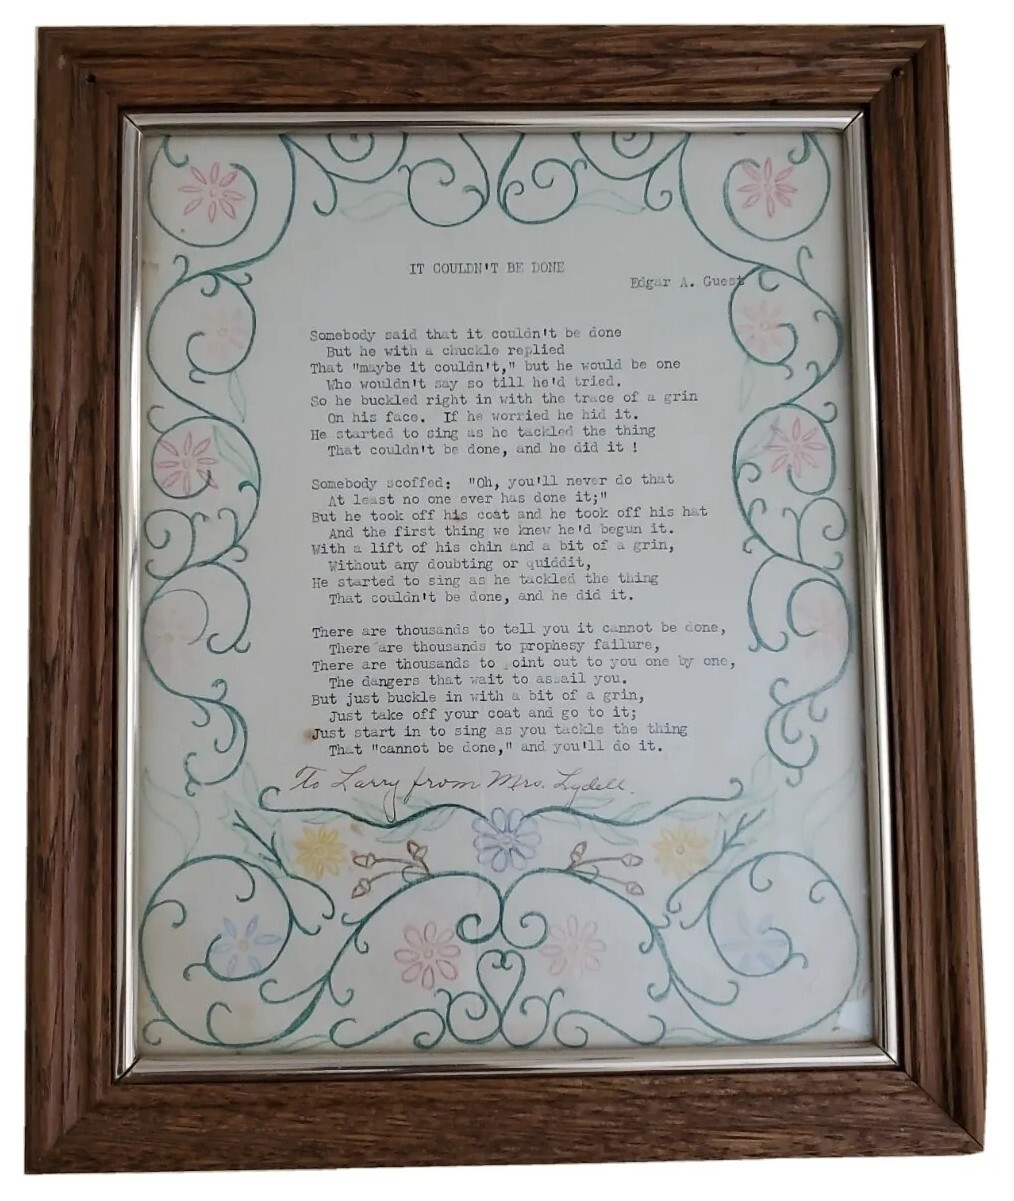 IT COULDN'T BE DONE
Edgar A. Guest
Somebody said that it couldn't be done
But he with a chuckle replied
That "maybe it couldn't," but he would be one
Who wouldn't say so till he'd tried.
So he buckled right in with the trace of a grin
On his face.  If he worried he hid it.
He started to sing as he tackled the thing
That couldn't be done, and he did it !
Somebody scoffed:  "Oh, you'll never do that
At least no one ever has done it;"
But he took off his coat and he took off his hat
And the first thing we knew he'd begun it.
With a lift of his chin and a bit of a grin,
Without any doubting or quiddit,
He started to sing as he tackled the thing
That couldn't be done, and he did it.
There are thousands to tell you it cannot be done,
There are thousands to prophesy failure,
There are thousands to point out to you one by one,
The dangers that wait to assail you.
But just buckle in with a bit of a grin,
Just take off your coat and go to it;
Just start in to sing as you tackle the thing
That "cannot be done," and you'll do it.
To Larry from Mrs. Lydell.